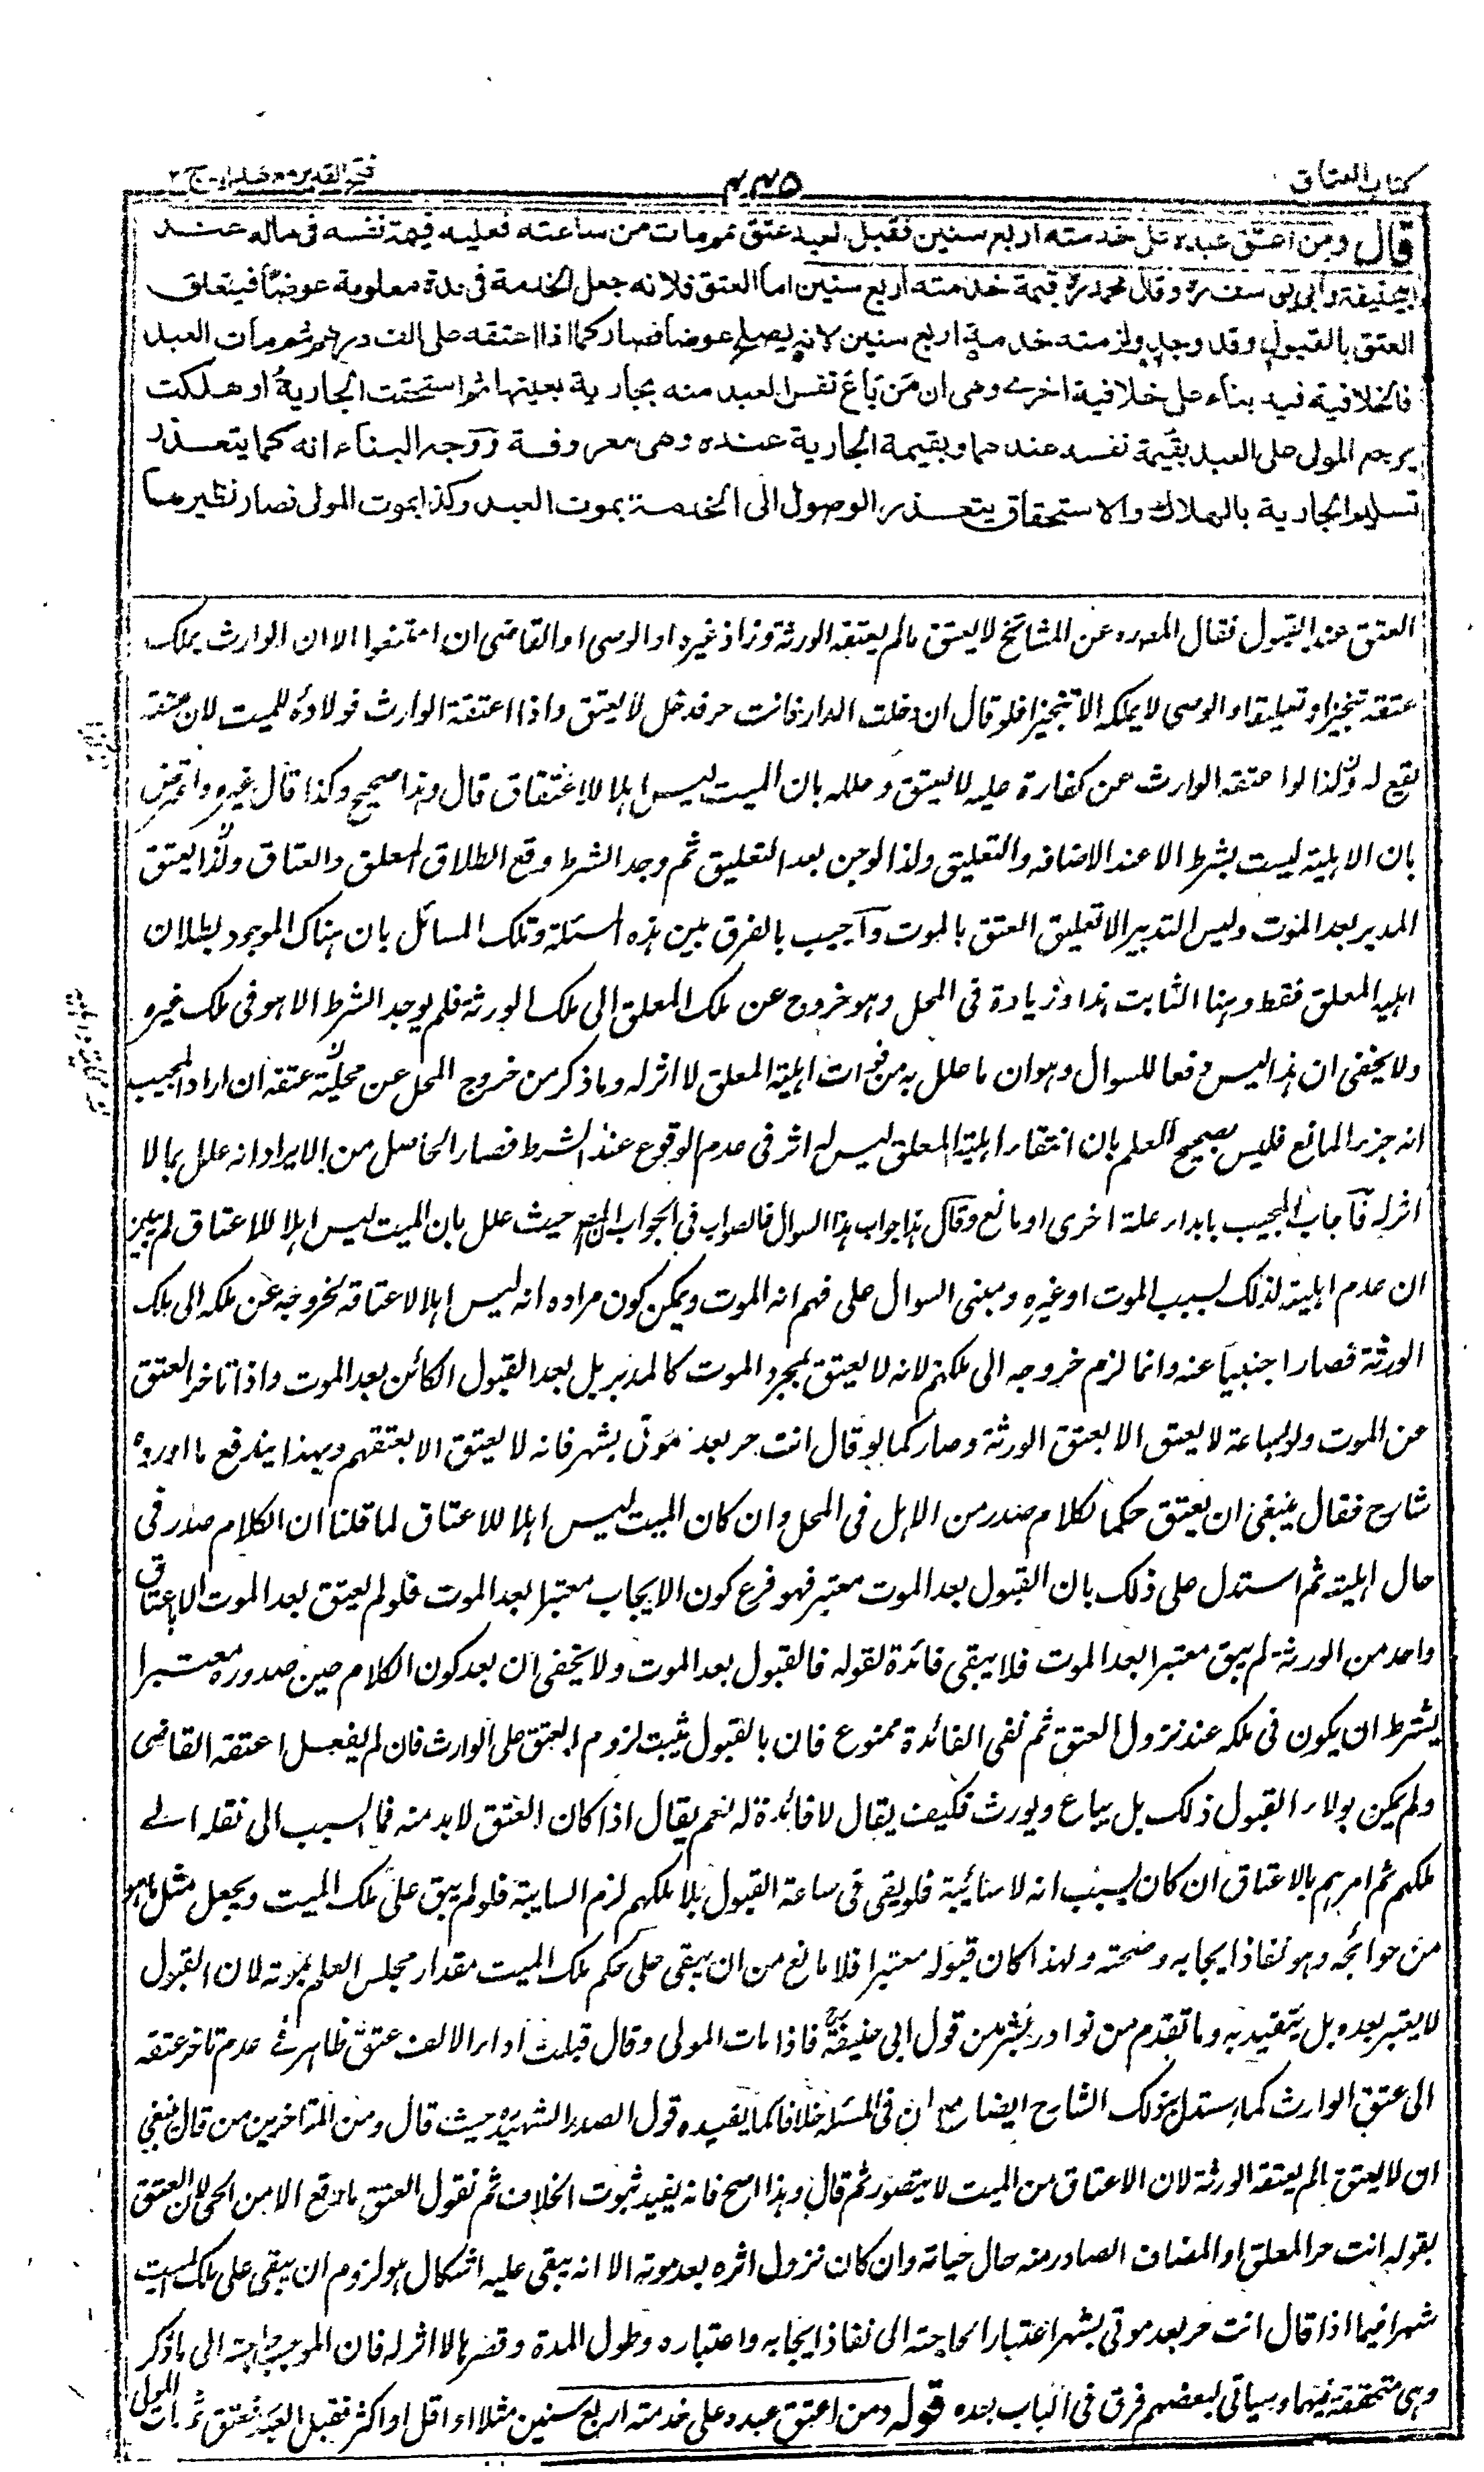 كتاب العتاق
٤٤٥
فتح القدير مع هداية ج ٢
قال ومن اعتق عبده على خدمته اربع سنين فقبل العبد عتق ثم مات من ساعته فعليه قيمة نفسه فى ماله عند
ابى حنيفة وابى يوسف رہ وقال محمد رہ قيمة خدمته اربع سنين اما العتق فلانه جعل الخدمة فى مدة معلومة عوضا فيتعلق
العتق بالقبول وقد وجد ولزمته خدمة اربع سنين لانه يصلح عوضا فصار كما اذا اعتقه على الف درهم ثم مات العبد
فالخلافية فيه بناء على خلافية اخرى وهى ان من باع نفس العبد منه بجارية بعينها ثم استحقت الجارية او هلكت
يرجع المولى على العبد بقيمة نفسه عندهما وبقيمة الجارية عنده وهى معروفة ووجه البناء انه كما يتعذر
تسليم الجارية بالهلاك والاستحقاق يتعذر الوصول الى الخدمة بموت العبد وكذا بموت المولى فصار نظيرها
العتق عند القبول فقال المصرہ عن المشائخ لا يعتق مالم يعتقه الورثة وزاد غيره او الوصى او القاضى ان امتنعوا الا ان الوارث يملك
عتقه تنجيزا وتعليقا والوصى لا يملكه الا تنجيزا فلو قال ان دخلت الدار فانت حر فدخل لا يعتق واذا اعتقه الوارث فولاؤه للميت لان عتقه
يقع له ولذا لو اعتقه الوارث عن كفارة عليه لا يعتق وعلله بان الميت ليس اهلا للاعتاق قال وهذا صحيح وكذا قال غيره واعترض
بان الاهلية ليست بشرط الا عند الاضافة والتعليق ولذا لو جن بعد التعليق ثم وجد الشرط وقع الطلاق المعلق والعتاق ولذا يعتق
المدبر بعد الموت وليس التدبير الا تعليق العتق بالموت وآجيب بالفرق بين هذه المسئلة وتلك المسائل بان هناك الموجود بطلان
اهلية المعلق فقط وهنا الثابت هذا وزيادة فى المحل وهو خروج عن ملك المعلق الى ملك الورثة فلم يوجد الشرط الا هو فى ملك غيره
ولا يخفى ان هذا ليس دفعا للسوال وهو ان ما علل به من فوات اهلية المعلق لا اثر له وما ذكر من خروج المحل عن محلية عتقه ان اراد المجيب
انه جزء المانع فليس بصحيح للعلم بان انتفاء اهلية المعلق ليس له اثر فى عدم الوقوع عند الشرط فصار الحاصل من الايراد انه علل بما لا
اثر له فآجاب المجيب بابداء علة اخرى او مانع وقال هذا جواب هذا السوال فالصواب فى الجواب ان المص حيث علل بان الميت ليس اهلا للاعتاق لم يبين
ان عدم اهليته لذلك بسبب الموت او غيره ومبنى السوال على فهم انه الموت ويمكن كون مراده انه ليس اهلا لاعتاقه لخروجه عن ملكه الى ملك
الورثة فصار اجنبيا عنه وانما لزم خروجه الى ملكهم لانه لا يعتق بمجرد الموت كالمدبر بل بعد القبول الكائن بعد الموت واذا تاخر العتق
عن الموت ولو بساعة لا يعتق الا بعتق الورثة وصار كما لو قال انت حر بعد موتى بشهر فانه لا يعتق الا بعتقهم وبهذا يندفع ما اورده
شارح فقال ينبغى ان يعتق حكما لكلام صدر من الاهل فى المحل وان كان الميت ليس اهلا للاعتاق لما قلنا ان الكلام صدر فى
حال اهليته ثم استدل على ذلك بان القبول بعد الموت معتبر فهو فرع كون الايجاب معتبرا بعد الموت فلو لم يعتق بعد الموت الا باعتاق
واحد من الورثة لم يبق معتبرا بعد الموت فلا يبقى فائدة لقوله فالقبول بعد الموت ولا يخفى ان بعد كون الكلام حين صدوره معتبرا
يشترط ان يكون فى ملكه عند نزول العتق ثم نفى الفائدة ممنوع فان بالقبول يثبت لزوم العتق على الوارث فان لم يفعل اعتقه القاضى
ولم يكن لولاء القبول ذلك بل يباع ويورث فكيف يقال لا فائدة له نعم يقال اذا كان العتق لا بد منه فما السبب الى نقله الے
ملكهم ثم امرهم بالاعتاق ان كان بسبب انه لا سائبة فلو بقى فى ساعة القبول بلا ملكهم لزم السايبة فلو لم يبق على ملك الميت ويجعل مثل ما هو
من حوائجه وهو نفاذ ايجابه وصحته ولهذا كان قبوله معتبرا فلا مانع من ان يبقى على حكم ملك الميت مقدار مجلس العلم بموته لان القبول
لا يعتبر بعده بل يتقيد به وما تقدم من نوادر بشر من قول ابى حنيفة رح فاذا مات المولى وقال قبلت اداء الالف عتق ظاهر فى عدم تاخر عتقه
الى عتق الوارث كما استدل بذلك الشارح ايضا مع ان فى المسئلة خلافا كما يفيده قول الصدر الشهيد رہ حيث قال ومن المتاخرين من قال ينبغى
ان لا يعتق مالم يعتقه الورثة لان الاعتاق من الميت لا يتصور ثم قال وهذا اصح فانه يفيد ثبوت الخلاف ثم نقول العتق ما وقع الا من الحى لان العتق
بقوله انت حر المعلق او المضاف الصادر منه حال حياته وان كان نزول اثره بعد موته الا انه يبقى عليه اشكال هو لزوم ان يبقى على ملك الميت
شهرا فيما اذا قال انت حر بعد موتى بشهر اعتبارا لحاجته الى نفاذ ايجابه واعتباره وطول المدة وقصرها لا اثر له فان الموجب حاجته الى ما ذكر
وهى متحققة فيهما وسياتى لبعضهم فرق فى الباب بعده قوله ومن اعتق عبده على خدمته اربع سنين مثلا او اقل او اكثر فقبل العبد فعتق ثم مات المولى